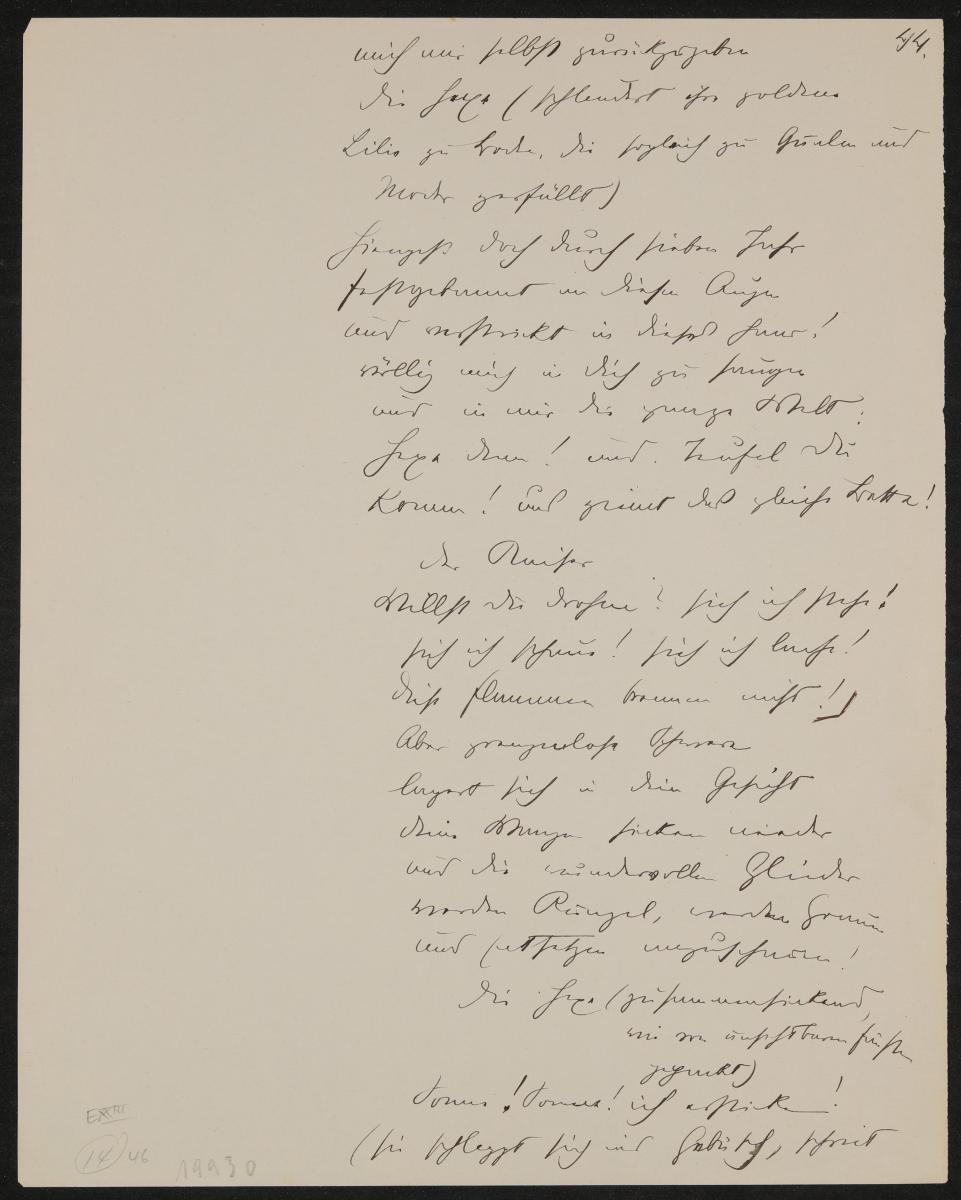 44.
mich mir selbst zurückzugeben
die Hexe (schleudert ihre goldene
Lilie zu Boden, die sogleich zu Qualm und
Moder zerfällt)
Hiengest doch durch sieben Jahr
festgebannt an diesen Augen
und verstrickt in dieses Haar!
völlig mich in dich zu saugen
und in mir die ganze Welt:
Hexe denn! und Teufel du
Komm! uns grient das gleiche Bette!
der Kaiser
Willst du drohen? sieh ich stehe!
sieh ich schaue! sieh ich lache!
diese flammen brennen nicht!
Aber grauenlose Schwere
lagert sich in dein Gesicht
deine Wangen sinken nieder
und die wundervollen Glieder
werden Runzel, werden Graun
und Entsetzen anzuschauen!
die Hexe (zusammensinkend,
wie von unsichtbaren fäusten
gepackt)
Sonne! Sonne! ich ersticke!
(sie schleppt sich ins Gebüsch, schreit
EXIII
14 46
19930